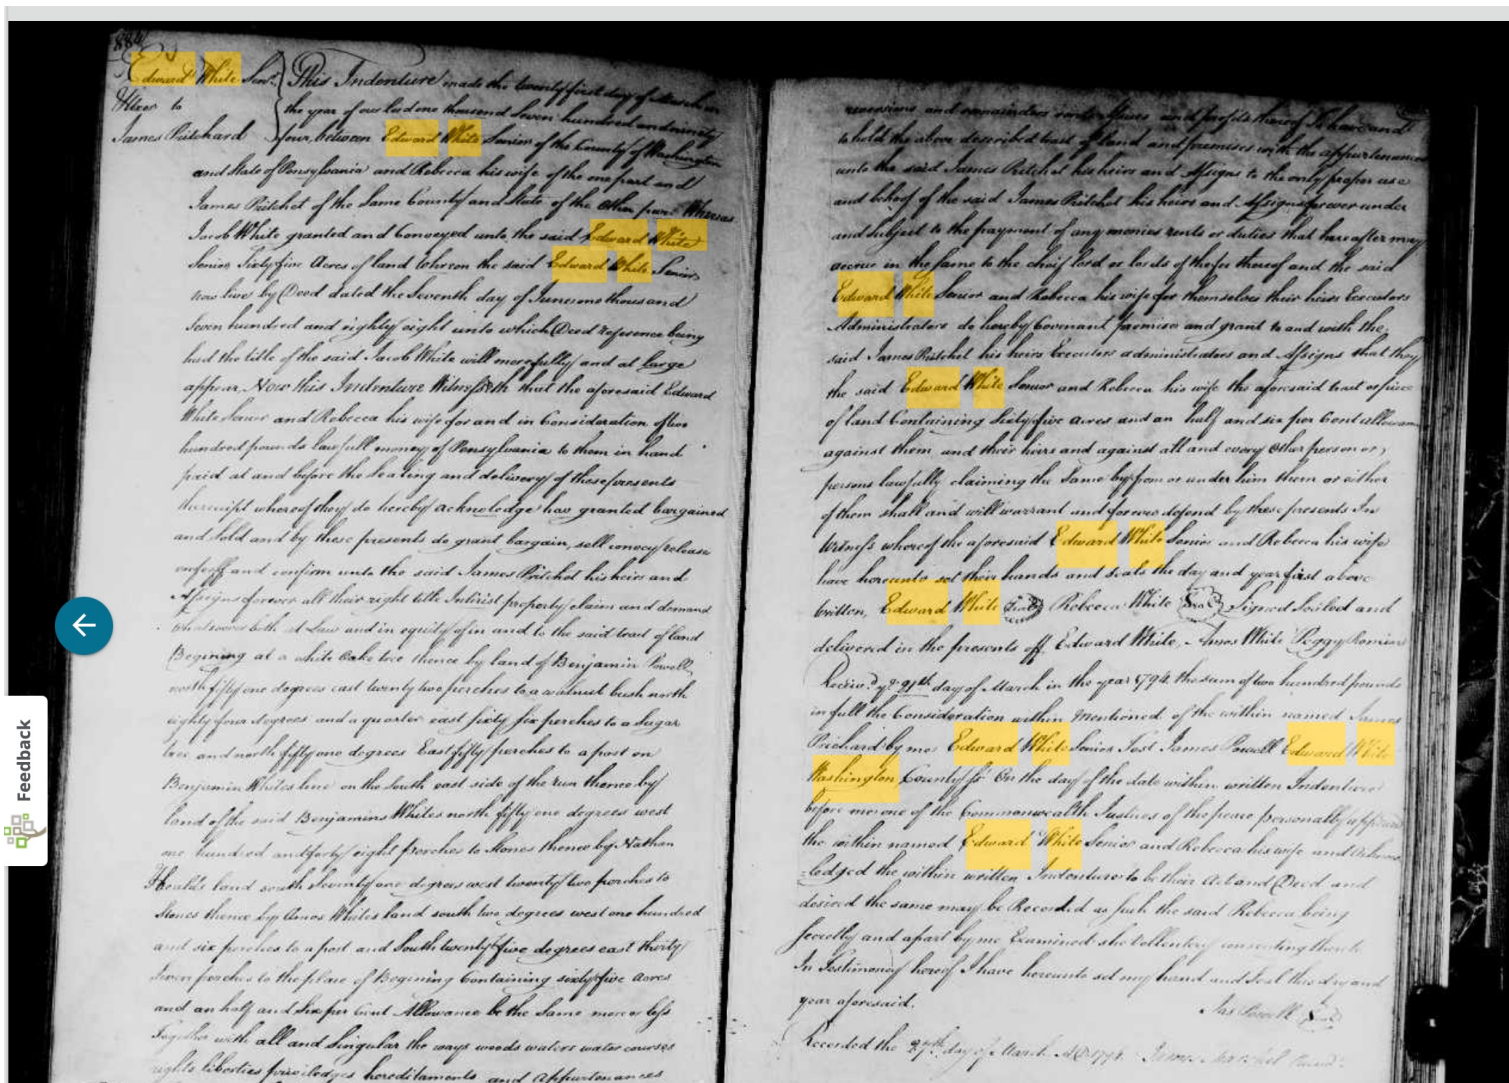 884
Edward White Senr.
Uxor to
James Pritchard
This Indenture made the twenty first day of March in
the year of our lord one thousand Seven hundred and ninety
four between Edward White Senior of the County of Washington
and State of Pensylvania and Rebecca his wife of the one part and
James Pritchet of the Same County and State of the other part Whereas
Jacob White granted and Conveyed unto the said Edward White
Senior Sixty five Acres of land whereon the said Edward White Senior
now live by Deed dated the Seventh day of June one thousand
Seven hundred and eighty eight unto which Deed reference being
had the title of the said Jacob White will more fully and at Large
appear Now this Indenture Witnesseth that the aforesaid Edward
White Senior and Rebecca his wife for and in Consideration of two
hundred pounds lawfull money of Pensylvania to them in hand
paid at and before the Sealing and delivery of these presents
the receipt whereof they do hereby acknoledge has granted bargained
and Sold and by these presents do grant bargain, sell convey release
enfeoff and confirm unto the said James Pritchet his heirs and
Assigns forever all their right title Intirist property claim and demand
whatsoever both at Law and in equity of in and to the said tract of land
Begining at a white Oake tree thence by land of Benjamin Powell
north fifty one degrees east twenty two perches to a walnut bush north
eighty four degrees and a quarter east sixty six perches to a Sugar
tree and north fifty one degrees East fifty perches to a post on
Benjamin Whites line on the South east side of the run thence by
land of the said Benjamins Whites north fifty one degrees west
one hundred and forty eight perches to Stones thence by Nathan
Heralds land south Seventy one degrees west twenty two perches to
Stones thence by Amos Whites land south two degrees west one hundred
and six perches to a post and South twenty five degrees east thirty
Seven perches to the place of Begining Containing sixty five acres
and an half and Six per Cent Allowance be the Same more or less
Together with all and Singular the ways woods waters water courses
rights liberties priviledges hereditaments and Appurtenances
reversions and remainders rents Issues and profits thereof To have and
to hold the above described tract of land and premises with the appurtenances
unto the said James Pritchet his heirs and Assigns to the only proper use
and behoof of the said James Pritchet his heirs and Assigns forever under
and subject to the payment of any monies rents or duties that hereafter may
accrue in the same to the chief lord or lords of the fee thereof and the said
Edward White Senior and Rebecca his wife for themselves their heirs Executors
Administrators do hereby Covenant promise and grant to and with the
said James Pritchet his heirs Executors administrators and Assigns that they
the said Edward White Senior and Rebecca his wife the aforesaid tract or piece
of land Containing Sixty five acres and an half and six per Cent allowance
against them and their heirs and against all and every Other person or
persons lawfully claiming the Same by from or under him them or either
of them shall and will warrant and forever defend by these presents In
Witness whereof the aforesaid Edward White Senior and Rebecca his wife
have hereunto set their hands and seals the day and year first above
written, Edward White Seal Rebecca White Seal Signed Sealed and
delivered in the presents off. Edward White, Amos White Peggy
Receivd ye 21th day of March in the year 1794 the sum of two hundred pounds
in full the Consideration within mentioned of the within named James
Prichard by me Edward White Senior Test James Powell Edward White
Washington County ss On the day of the date within written Indenture
before me one of the Commonwealth Justices of the peace personally appeared
the within named Edward White Senior and Rebecca his wife and Acknow
-ledged the within written Indenture to be their Act and Deed and
desired the same may be Recorded as such the said Rebecca being
secretly and apart by me Examined she vollentery consenting thereto
In Testimony hereof I have hereunto set my hand and Seal this day and
year aforesaid.
Jas Powell Seal
Recorded the 27th day of March AD 1794
Feedback